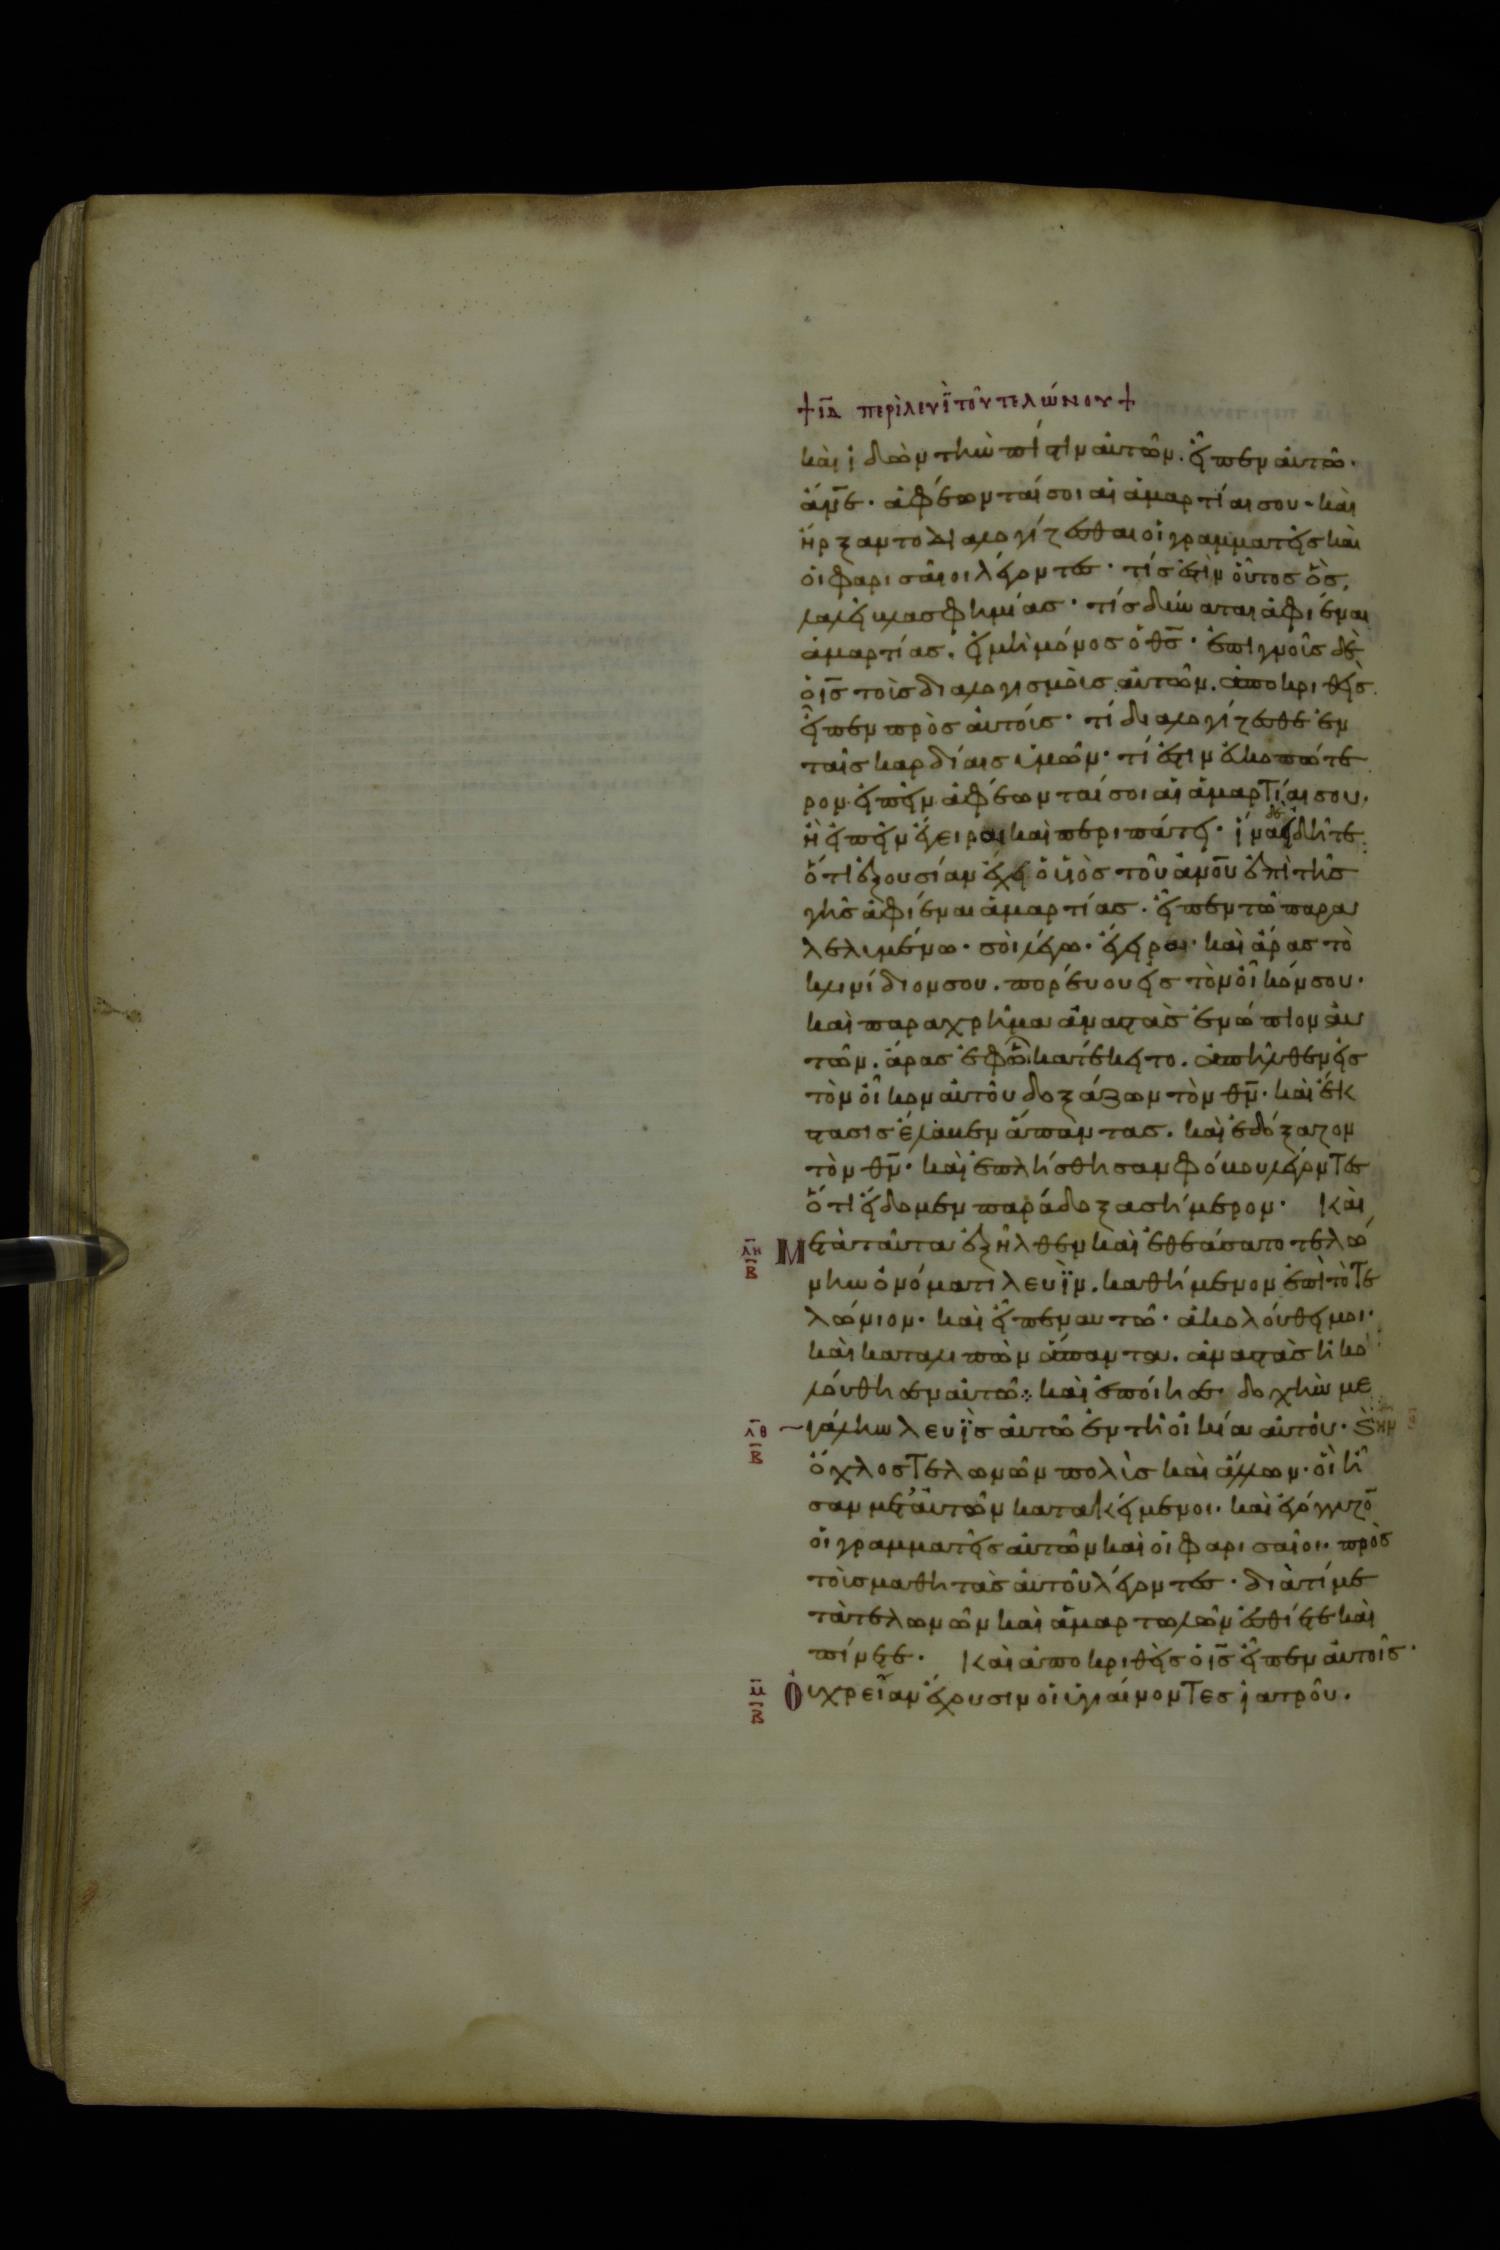 + ιδ περὶ λευῒ τοῦ τελώνου +
καὶ ἰδὼν τὴν πίστιν αὐτῶν. εἶπεν αὐτῶ·
ἄν̅ε· ἀφέωνταί σοι αἱ ἁμαρτίαι σου· καὶ
ἤρξαντο διαλογίζεσθαι οἱ γραμματεῖς καὶ
οἱ φαρισαῖοι λέγοντες· τίς ἐστὶν οὗτος ὃς
λαλεῖ βλασφημίας· τίς δύναται ἀφιέναι
ἁμαρτίας. εἰ μὴ μόνος ὁ θ̅ς̅· ἐπιγνοὺς δὲ
ὁ ι̅ς̅ τοὺς διαλογισμοὺς αὐτῶν. ἀποκριθεὶς
εἶπεν πρὸς αὐτούς· τί διαλογίζεσθε ἐν
ταῖς καρδίαις ὑμῶν· τί ἐστιν εὐκοπώτε
ρον. εἰπεῖν ἀφέωνταί σοι αἱ ἁμαρτίαι σου·
ἢ εἰπεῖν ἔγειραι καὶ περιπάτει· ἵνα δὲ εἰδῆτε
ὅτι ἐξουσίαν ἔχει ὁ υἱὸς τοῦ ἀν̅ο̅υ̅ ἐπὶ τῆς
γῆς ἀφιέναι ἁμαρτίας. εἶπεν τῶ παρα
λελυμένω· σοὶ λέγω· ἔγειραι· καὶ ἄρας τὸ
κλινίδιον σου. πορεύου εἰς τὸν οἶκόν σου·
καὶ παραχρῆμα ἀναστὰς ἐνώπιον αὐ
τῶν. ἄρας ἐφ ὧ κατέκειτο. ἀπῆλθεν εἰς
τὸν οἶκον αὐτοῦ δοξάζων τὸν θ̅ν̅· καὶ ἔκ
στασις ἔλαβεν ἅπαντας. καὶ ἐδόξαζον
τὸν θ̅ν̅· καὶ ἐπλήσθησαν φόβου λέγοντες
ὅτι εἴδομεν παράδοξα σήμερον· Καὶ
λη β Μετὰ ταῦτα ἐξῆλθεν καὶ ἐθεάσατο τελώ
νην ὀνόματι λευῒν. καθήμενον ἐπὶ τὸ τε
λώνιον· καὶ εἶπεν αυτῶ· ἀκολούθει μοι·
καὶ καταλιπὼν ἅπαντα. ἀναστὰς ἠκο
λούθησεν αὐτῶ: καὶ ἐποίησε δοχὴν με
λθ β γάλην λευῒς αὐτῶ ἐν τῆ οἰκία αὐτοῦ· καὶ ἦν
ὄχλος τελωνῶν πολὺς καὶ ἄλλων· οἳ ἦ
σαν μετ' αὐτῶν κατακείμενοι· καὶ ἐγόγγυζο̅
οἱ γραμματεῖς αὐτῶν καὶ οἱ φαρισαῖοι· πρὸς
τοὺς μαθητὰς αὐτοῦ λέγοντες· διὰ τί με
τὰ τελωνῶν καὶ ἁμαρτωλῶν ἐσθίετε καὶ
πίνετε· Καὶ ἀποκριθεὶς ὁ ι̅ς̅ εἶπεν αὐτοῖς·
μ β Οὐ χρείαν ἔχουσιν οἱ ὑγιαίνοντες ἰατροῦ.